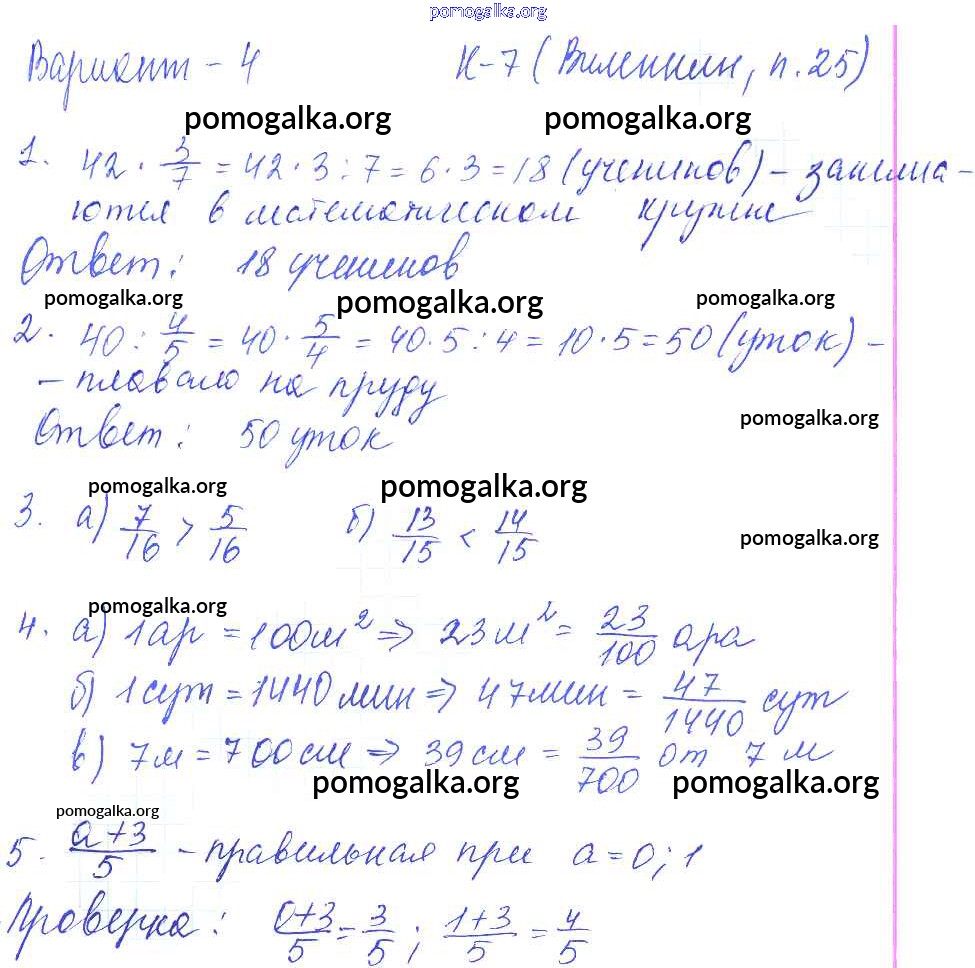 pomogalka.org
Вариант - 4 К-7 (Виленкин, п.25)
pomogalka.org pomogalka.org
1. 42 · 3/7 = 42 · 3 : 7 = 6 · 3 = 18 (учеников) - занима-
ются в математическом кружке
Ответ: 18 учеников
pomogalka.org pomogalka.org pomogalka.org
2. 40 : 4/5 = 40 · 5/4 = 40 · 5 : 4 = 10 · 5 = 50 (уток) -
- плавало на пруду
pomogalka.org
Ответ: 50 уток
pomogalka.org pomogalka.org
3. а) 7/16 > 5/16 б) 13/15 < 14/15
pomogalka.org
pomogalka.org
4. а) 1 ар = 100 м² => 23 м² = 23/100 ара
б) 1 сут = 1440 мин => 47 мин = 47/1440 сут
в) 7 м = 700 см => 39 см = 39/700 от 7 м
pomogalka.org pomogalka.org
pomogalka.org
5. a+3/5 - правильная при a = 0; 1
Проверка: 0+3/5 = 3/5 ; 1+3/5 = 4/5